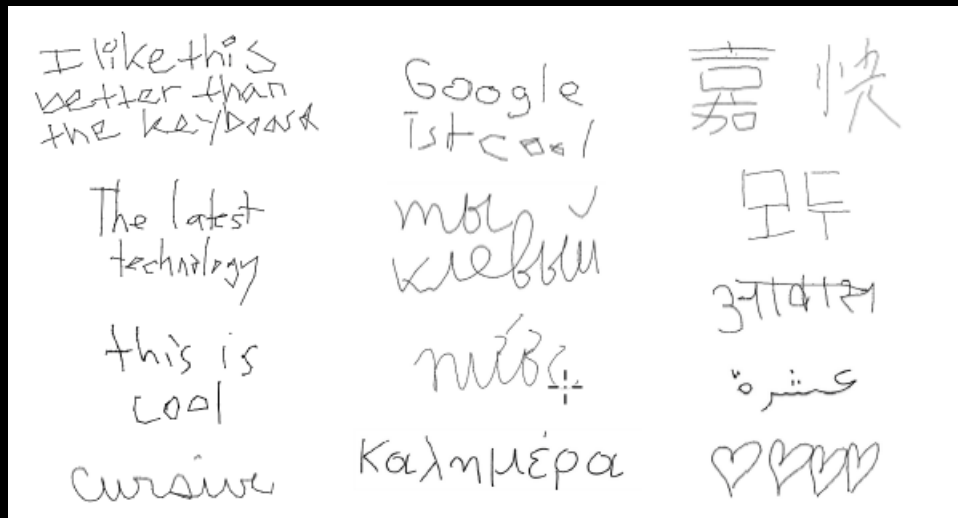 I like this
better than
the keyboard
The latest
technology
this is
cool
cursive
Google
ist cool
ты
клевый
Καλημέρα
嘉 快
모두
आवास
عشرة